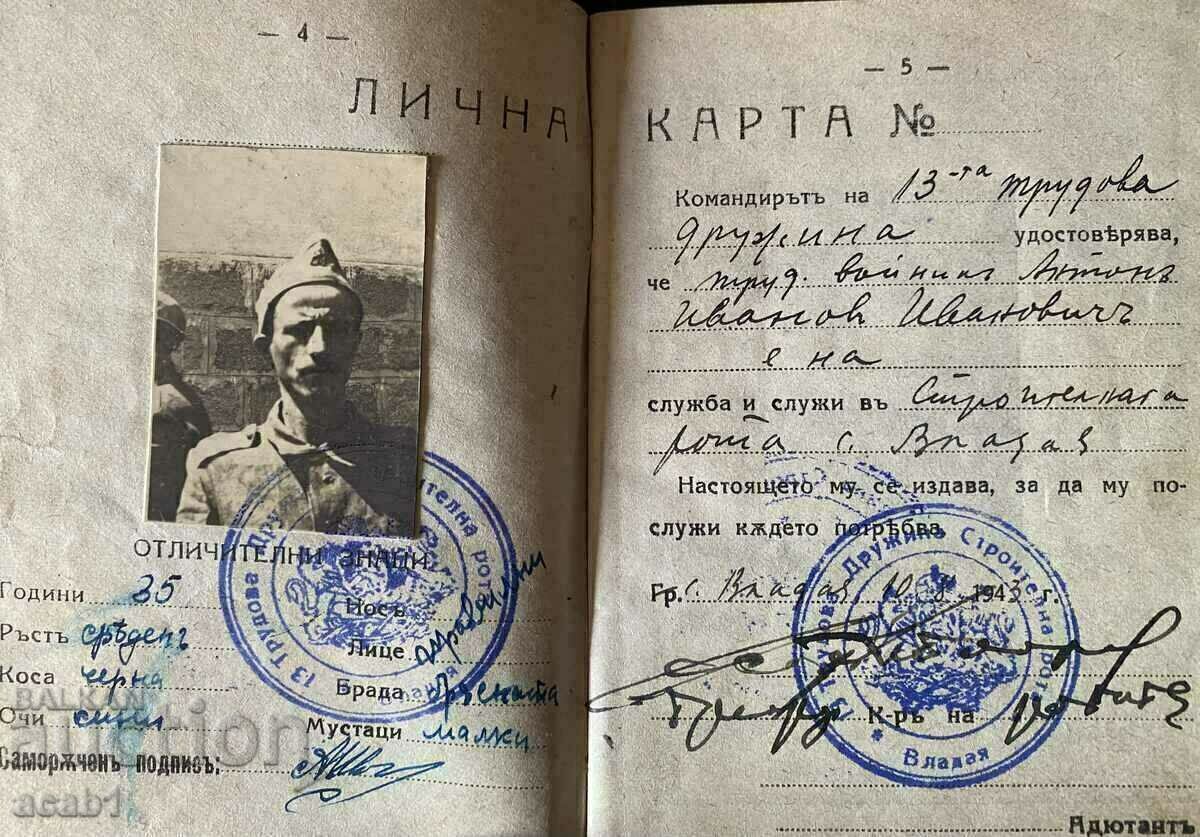 — 4 —
ЛИЧНА
ОТЛИЧИТЕЛНИ ЗНАЦИ
Години 35
Ръстъ срѣденъ
Коса черна
Очи сини
Носъ
Лице
Брада
Мустаци малки
Саморѫченъ подписъ:
13 Трудова Дру ителна рот
— 5 —
КАРТА №
Командирътъ на 13-та трудова
дружина удостовѣрява,
че труд. войникъ Антонъ
Иванов Ивановичъ
е на
служба и служи въ Строителната
рота с. Владая
Настоящето му се издава, за да му по-
служи кѫдето потрѣбва.
Гр. с. Владая, 10. 1943 г.
К-ръ на ротата
Адютантъ
13 Трудова Дружина Строителна рота * Владая *
BALKAN
auction
acab1